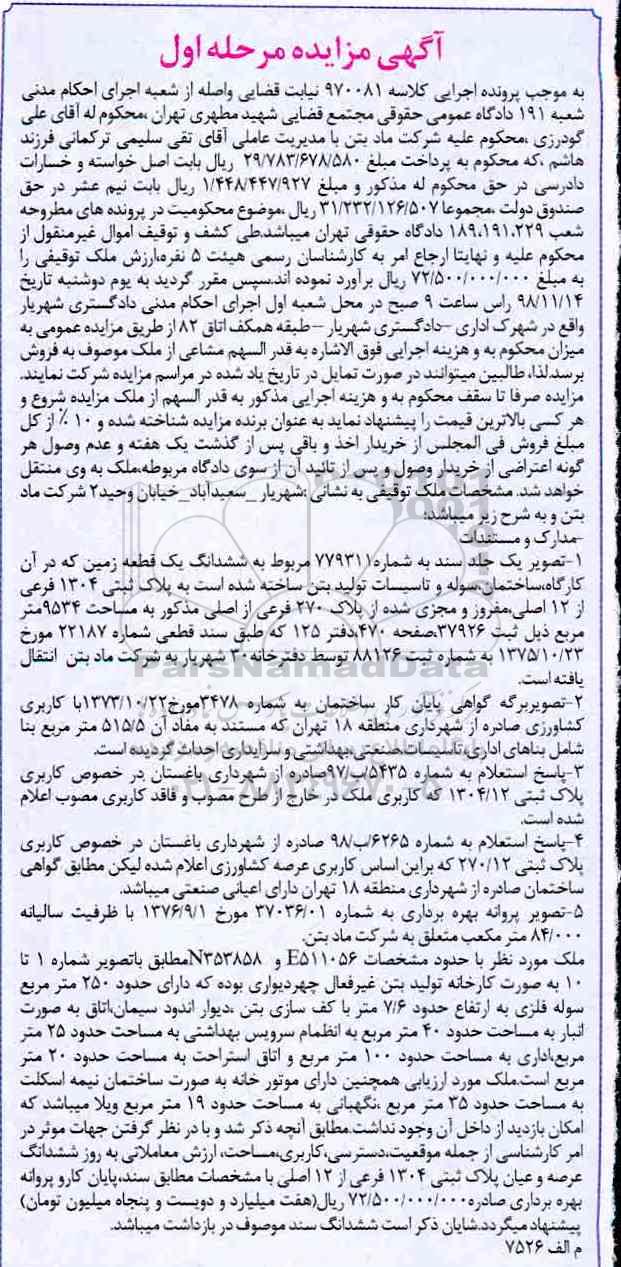 آگهی مزایده مرحله اول
به موجب پرونده اجرایی کلاسه ۹۷۰۰۸۱ نیابت قضایی واصله از شعبه اجرای احکام مدنی
شعبه ۱۹۱ دادگاه عمومی حقوقی مجتمع قضایی شهید مطهری تهران ،محکوم له آقای علی
گودرزی ،محکوم علیه شرکت ماد بتن با مدیریت عاملی آقای تقی سلیمی ترکمانی فرزند
هاشم ،که محکوم به پرداخت مبلغ ۲۹/۷۸۳/۶۷۸/۵۸۰ ریال بابت اصل خواسته و خسارات
دادرسی در حق محکوم له مذکور و مبلغ ۱/۴۴۸/۴۴۷/۹۲۷ ریال بابت نیم عشر در حق
صندوق دولت ،مجموعا ۳۱/۲۳۲/۱۲۶/۵۰۷ ریال ،موضوع محکومیت در پرونده های مطروحه
شعب ۱۸۹،۱۹۱،۲۲۹ دادگاه حقوقی تهران میباشد.طی کشف و توقیف اموال غیرمنقول از
محکوم علیه و نهایتا ارجاع امر به کارشناسان رسمی هیئت ۵ نفره،ارزش ملک توقیفی را
به مبلغ ۷۲/۵۰۰/۰۰۰/۰۰۰ ریال برآورد نموده اند.سپس مقرر گردید به یوم دوشنبه تاریخ
۹۸/۱۱/۱۴ راس ساعت ۹ صبح در محل شعبه اول اجرای احکام مدنی دادگستری شهریار
واقع در شهرک اداری –دادگستری شهریار –طبقه همکف اتاق ۸۲ از طریق مزایده عمومی به
میزان محکوم به و هزینه اجرایی فوق الاشاره به قدر السهم مشاعی از ملک موصوف به فروش
برسد.لذا،طالبین میتوانند در صورت تمایل در تاریخ یاد شده در مراسم مزایده شرکت نمایند.
مزایده صرفا تا سقف محکوم به و هزینه اجرایی مذکور به قدر السهم از ملک مزایده شروع و
هر کسی بالاترین قیمت را پیشنهاد نماید به عنوان برنده مزایده شناخته شده و ۱۰ ٪ از کل
مبلغ فروش فی المجلس از خریدار اخذ و باقی پس از گذشت یک هفته و عدم وصول هر
گونه اعتراضی از خریدار وصول و پس از تائید آن از سوی دادگاه مربوطه،ملک به وی منتقل
خواهد شد. مشخصات ملک توقیفی به نشانی :شهریار _سعیدآباد_خیابان وحید۲ شرکت ماد
بتن و به شرح زیر میباشد:
-مدارک و مستندات
۱-تصویر یک جلد سند به شماره۷۷۹۳۱۱ مربوط به ششدانگ یک قطعه زمین که در آن
کارگاه،ساختمان،سوله و تاسیسات تولید بتن ساخته شده است به پلاک ثبتی ۱۳۰۴ فرعی
از ۱۲ اصلی،مفروز و مجزی شده از پلاک ۲۷۰ فرعی از اصلی مذکور به مساحت ۹۵۳۴متر
مربع ذیل ثبت ۳۷۹۲۶،صفحه ۴۷۰،دفتر ۱۲۵ که طبق سند قطعی شماره ۲۲۱۸۷ مورخ
۱۳۷۵/۱۰/۲۳ به شماره ثبت ۸۸۱۲۶ توسط دفترخانه۳۰ شهریار به شرکت ماد بتن انتقال
یافته است.
۲-تصویربرگه گواهی پایان کار ساختمان به شماره ۳۴۷۸مورخ۱۳۷۳/۱۰/۲۲با کاربری
کشاورزی صادره از شهرداری منطقه ۱۸ تهران که مستند به مفاد آن ۵۱۵/۵ متر مربع بنا
شامل بناهای اداری،تاسیسات،صنعتی،بهداشتی و سرایداری احداث گردیده است.
۳-پاسخ استعلام به شماره ۵۴۳۵/ب/۹۷صادره از شهرداری باغستان در خصوص کاربری
پلاک ثبتی ۱۳۰۴/۱۲ که کاربری ملک در خارج از طرح مصوب و فاقد کاربری مصوب اعلام
شده است.
۴-پاسخ استعلام به شماره ۶۲۶۵/ب/۹۸ صادره از شهرداری باغستان در خصوص کاربری
پلاک ثبتی ۲۷۰/۱۲ که براین اساس کاربری عرصه کشاورزی اعلام شده لیکن مطابق گواهی
ساختمان صادره از شهرداری منطقه ۱۸ تهران دارای اعیانی صنعتی میباشد.
۵-تصویر پروانه بهره برداری به شماره ۳۷۰۳۶/۰۱ مورخ ۱۳۷۶/۹/۱ با ظرفیت سالیانه
۸۴/۰۰۰ متر مکعب متعلق به شرکت ماد بتن.
ملک مورد نظر با حدود مشخصات E۵۱۱۰۵۶ و N۳۵۳۸۵۸مطابق باتصویر شماره ۱ تا
۱۰ به صورت کارخانه تولید بتن غیرفعال چهردیواری بوده که دارای حدود ۲۵۰ متر مربع
سوله فلزی به ارتفاع حدود ۷/۶ متر با کف سازی بتن ،دیوار اندود سیمان،اتاق به صورت
انبار به مساحت حدود ۴۰ متر مربع به انظمام سرویس بهداشتی به مساحت حدود ۲۵ متر
مربع،اداری به مساحت حدود ۱۰۰ متر مربع و اتاق استراحت به مساحت حدود ۲۰ متر
مربع است.ملک مورد ارزیابی همچنین دارای موتور خانه به صورت ساختمان نیمه اسکلت
به مساحت حدود ۳۵ متر مربع ،نگهبانی به مساحت حدود ۱۹ متر مربع ویلا میباشد که
امکان بازدید از داخل آن وجود نداشت.مطابق آنچه ذکر شد و با در نظر گرفتن جهات موثر در
امر کارشناسی از جمله موقعیت،دسترسی،کاربری،مساحت، ارزش معاملاتی به روز ششدانگ
عرصه و عیان پلاک ثبتی ۱۳۰۴ فرعی از ۱۲ اصلی با مشخصات مطابق سند،پایان کارو پروانه
بهره برداری صادره۷۲/۵۰۰/۰۰۰/۰۰۰ ریال(هفت میلیارد و دویست و پنجاه میلیون تومان)
پیشنهاد میگردد.شایان ذکر است ششدانگ سند موصوف در بازداشت میباشد.
م الف ۷۵۲۶
ParsNamadData